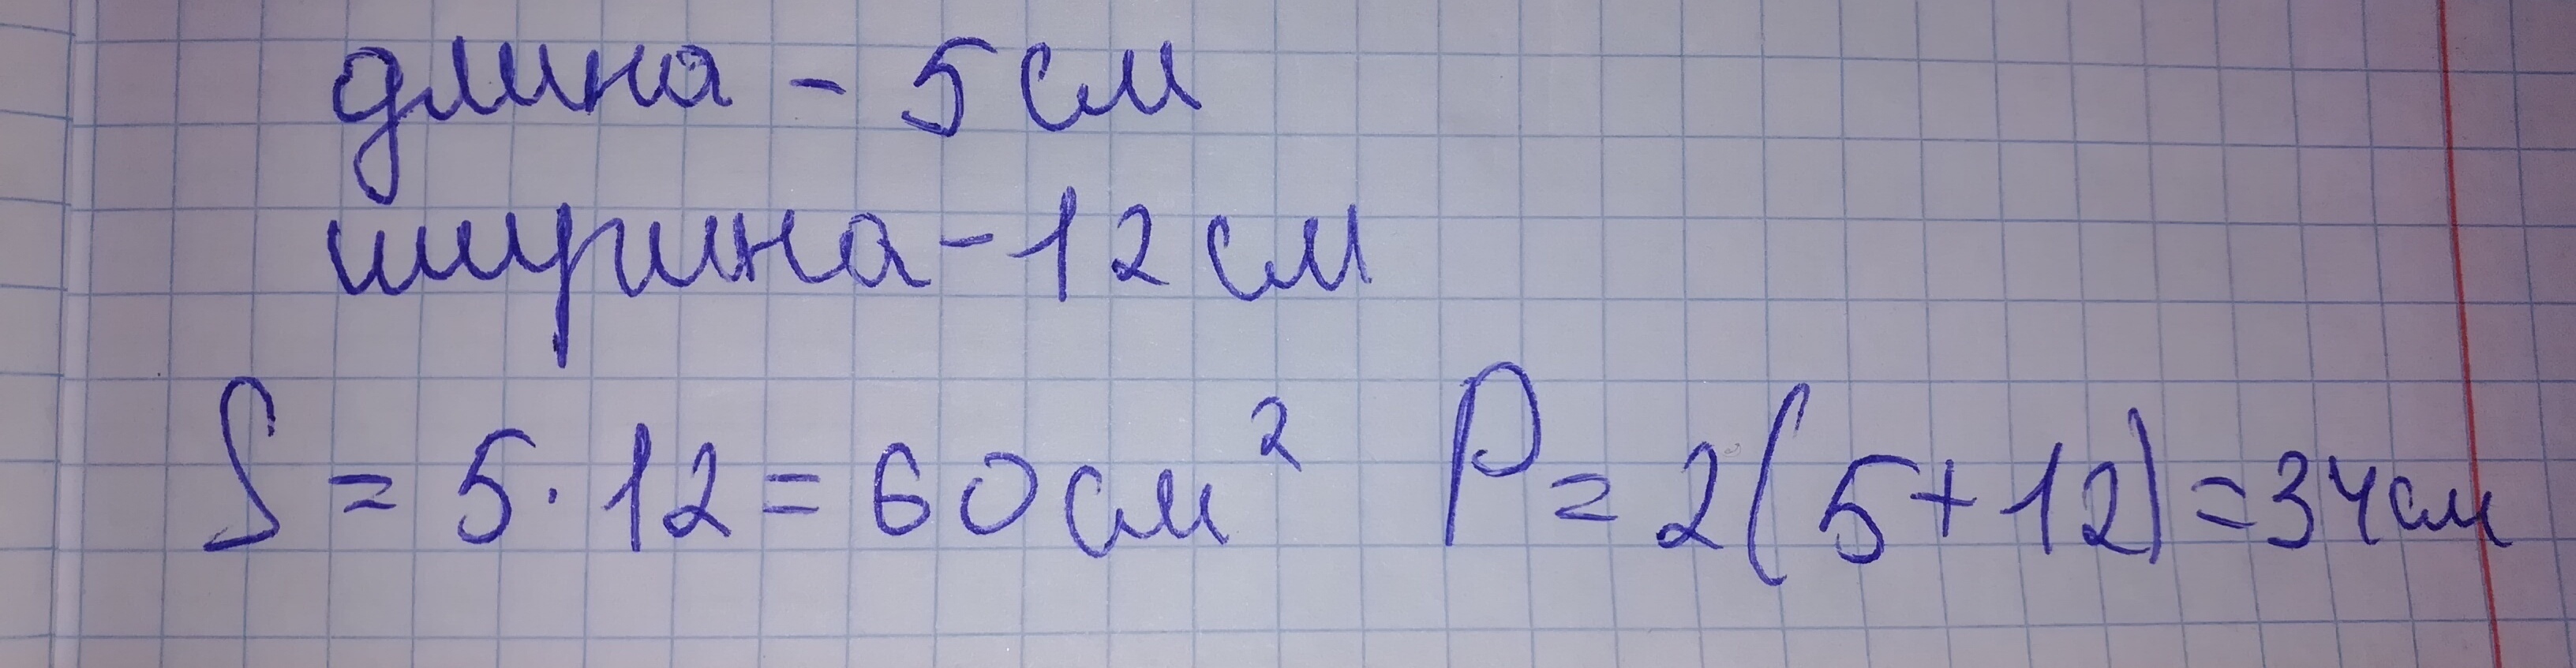 длина - 5 см
ширина - 12 см
S = 5 · 12 = 60 см² P = 2(5+12) = 34 см